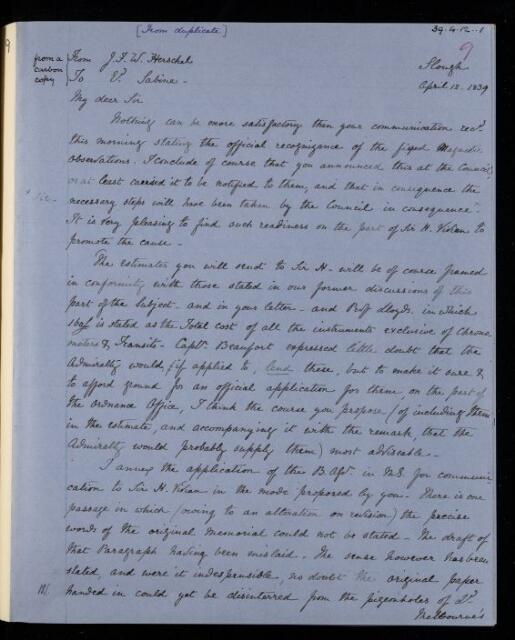 [From duplicate]
39.4.12.-1
9
9
from a carbon copy
From J. F. W. Herschel
Slough
To E. Sabine -
April 12. 1839
My dear Sir
Nothing can be more satisfactory than your communication recd.
this morning stating the official recognizance of the fixed Magnetic
Observations. I conclude of course that you announced this at the Council,
or at least caused it to be notified to them, and that in consequence the
necessary steps will have been taken by the Council in consequence.
It is very pleasing to find such readiness on the part of Sir H. Vivian to
promote the cause -
The estimates you will send to Sir H - will be of course framed
in conformity with those stated in our former discussions of this
part of the Subject - and in your letter - and Proff Lloyds. in which
is stated as the Total cost of all the instruments exclusive of Chrono
meters & Transits - Captn. Beaufort expressed little doubt that the
Admiralty would, if applied to, lend these, but to make it sure &
to afford ground for an official application for them, on the part of
the Ordnance Office, I think the course you propose (of including them
in the estimate, and accompanying it with the remark, that the
Admiralty would probably supply them) most advisable -
I annex the application of the B. Assn. in M.S. for communi
cation to Sir H. Vivian in the mode proposed by you - There is one
passage in which (owing to an alteration on revision) the precise
words of the original Memorial could not be stated - the draft of
that Paragraph having been mislaid. The sense however has been
stated, and were it indespensible, no doubt the original paper
handed in could yet be disinterred from the pigeonholes of Ld.
Melbourne's